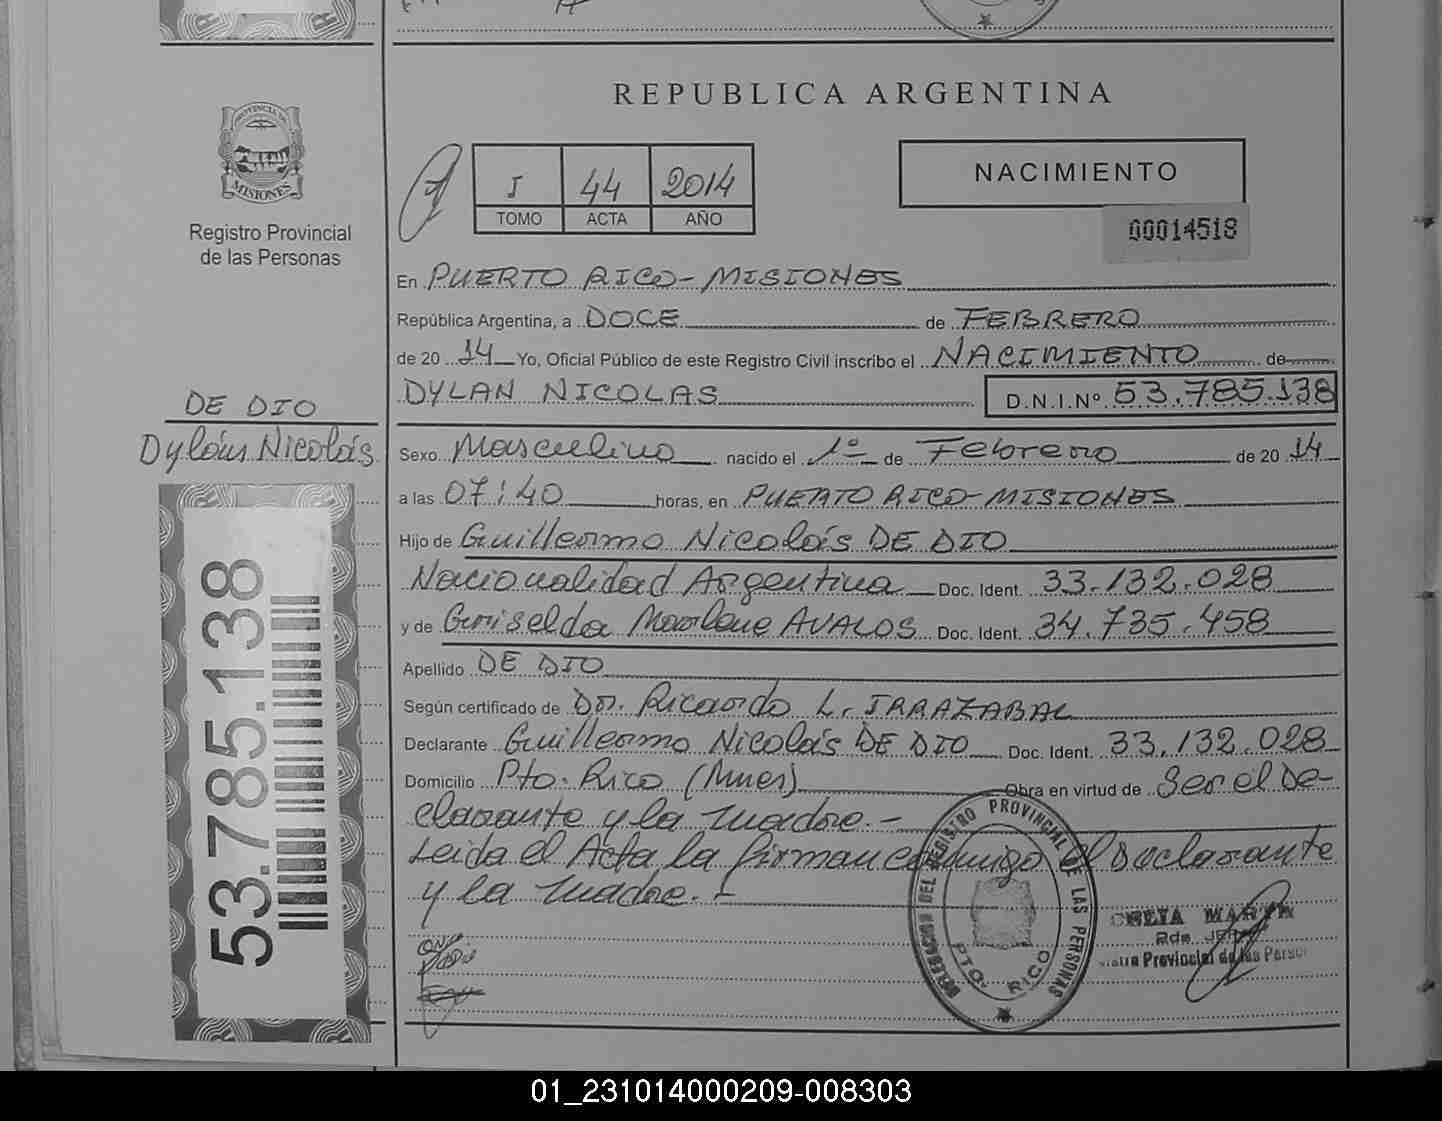 REPUBLICA ARGENTINA
PROVINCIA DE
MISIONES
Registro Provincial
de las Personas
I 44 2014
TOMO ACTA AÑO
NACIMIENTO
00014518
En PUERTO RICO-MISIONES
República Argentina, a DOCE de FEBRERO
de 20 14 Yo, Oficial Público de este Registro Civil inscribo el NACIMIENTO de
DYLAN NICOLAS D.N.I.Nº 53.785.138
DE DIO
Dylán Nicolás
Sexo Masculino nacido el 1º de Febrero de 20 14
a las 07:40 horas, en PUERTO RICO-MISIONES
Hijo de Guillermo Nicolás DE DIO
Nacionalidad Argentina Doc. Ident. 33.132.028
y de Griselda Marlene AVALOS Doc. Ident. 34.735.458
Apellido DE DIO
Según certificado de Dr. Ricardo L. IRRAZABAL
Declarante Guillermo Nicolás DE DIO Doc. Ident. 33.132.028
Domicilio Pto. Rico (Mnes) Obra en virtud de Ser el De-
clarante y la madre.-
Leida el Acta la firman conmigo el Declarante
y la madre.-
53.785.138
DELEGACION DEL REGISTRO PROVINCIAL DE LAS PERSONAS
PTO. RICO
Provincial de las
01_231014000209-008303